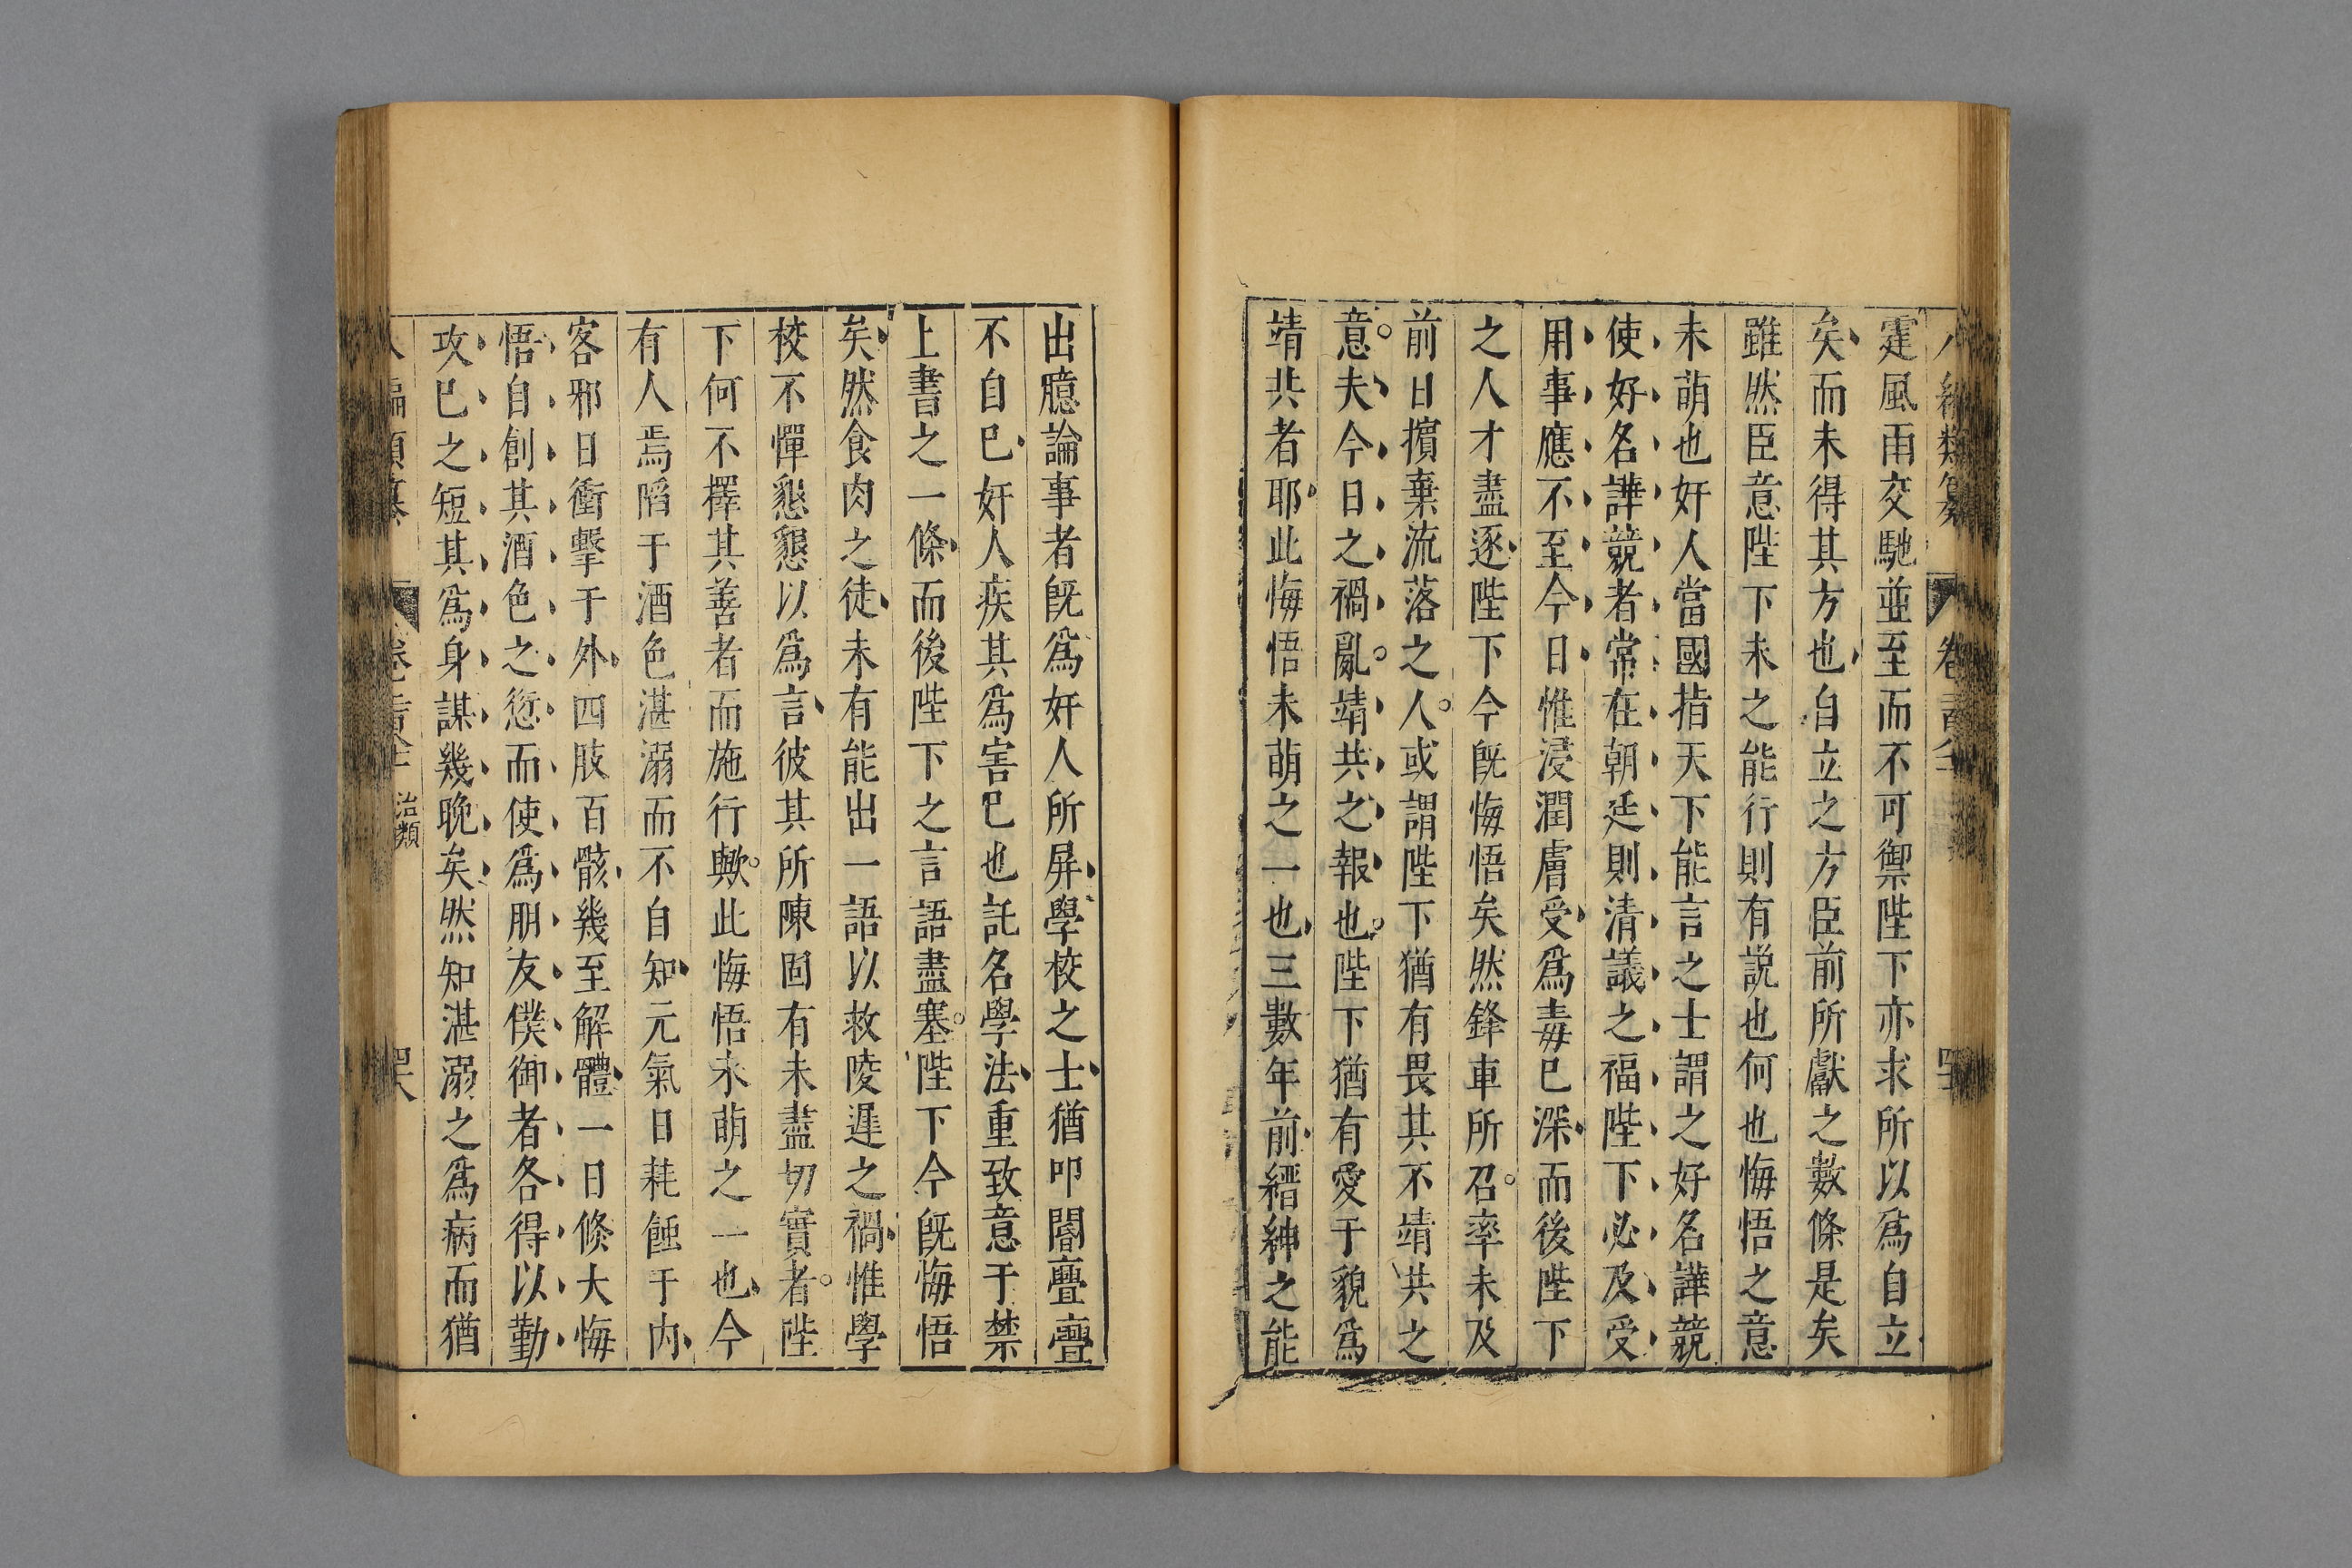 霆風雨交馳並至而不可禦陛下亦求所以爲自立
矣而未得其方也自立之方臣前所獻之數條是矣
雖然臣意陛下未之能行則有説也何也悔悟之意
未萌也奸人當國指天下能言之士謂之好名譁競
使好名譁競者常在朝廷則清議之福陛下必及受
用事應不至今日惟浸潤膚受爲毒已深而後陛下
之人才盡逐陛下今旣悔悟矣然鋒車所召率未及
前日擯棄流落之人或謂陛下猶有畏其不靖共之
意夫今日之禍亂靖共之報也陛下猶有愛于貌爲
靖共者耶此悔悟未萌之一也三數年前縉紳之能
出臆論事者旣爲奸人所屏學校之士猶叩閽亹亹
不自已奸人疾其爲害已也託名學法重致意于禁
上書之一條而後陛下之言語盡塞陛下今旣悔悟
矣然食肉之徒未有能出一語以救陵遲之禍惟學
校不憚懇懇以爲言彼其所陳固有未盡切實者陛
下何不擇其善者而施行歟此悔悟未萌之一也今
有人焉陷于酒色湛溺而不自知元氣日耗蝕于內
客邪日衝擊于外四肢百骸幾至解體一日倏大悔
悟自創其酒色之愆而使爲朋友僕御者各得以勤
攻已之短其爲身謀幾晚矣然知湛溺之爲病而猶
治類